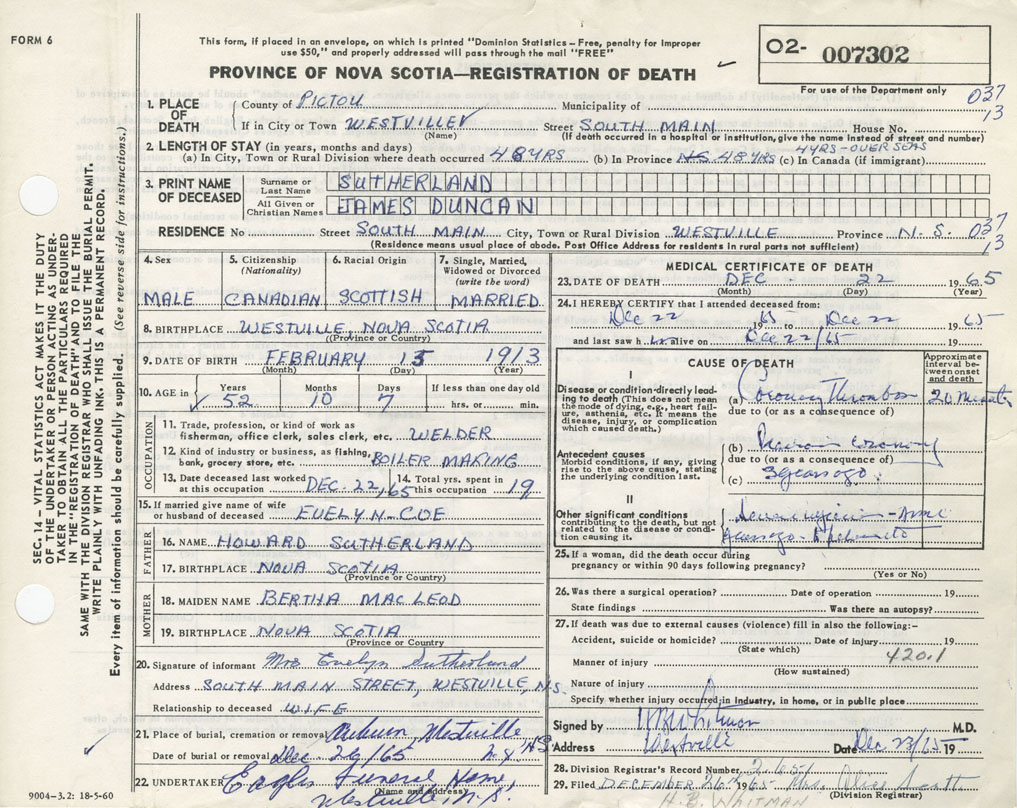 FORM 6
This form, if placed in an envelope, on which is printed "Dominion Statistics – Free, penalty for improper
use $50," and properly addressed will pass through the mail "FREE"
PROVINCE OF NOVA SCOTIA—REGISTRATION OF DEATH
O2- 007302
For use of the Department only
037
13
1. PLACE OF DEATH
County of PICTOU Municipality of
If in City or Town WESTVILLE Street SOUTH MAIN House No.
(Name) (If death occurred in a hospital or institution, give the name instead of street and number)
2. LENGTH OF STAY (in years, months and days) 4 YRS-OVER SEAS
(a) In City, Town or Rural Division where death occurred 48 YRS (b) In Province NS 48 YRS (c) In Canada (if immigrant)
3. PRINT NAME OF DECEASED
Surname or Last Name SUTHERLAND
All Given or Christian Names JAMES DUNCAN
037
13
RESIDENCE No Street SOUTH MAIN City, Town or Rural Division WESTVILLE Province N.S.
(Residence means usual place of abode. Post Office Address for residents in rural parts not sufficient)
4. Sex MALE
5. Citizenship (Nationality) CANADIAN
6. Racial Origin SCOTTISH
7. Single, Married, Widowed or Divorced (write the word) MARRIED
8. BIRTHPLACE WESTVILLE, NOVA SCOTIA
(Province or Country)
9. DATE OF BIRTH FEBRUARY 15 1913
(Month) (Day) (Year)
10. AGE in Years 52 Months 10 Days 7 If less than one day old hrs. or min.
OCCUPATION
11. Trade, profession, or kind of work as
fisherman, office clerk, sales clerk, etc. WELDER
12. Kind of industry or business, as fishing,
bank, grocery store, etc. BOILER MAKING
13. Date deceased last worked at this occupation DEC. 22, 65
14. Total yrs. spent in this occupation 19
15. If married give name of wife
or husband of deceased EVELYN-COE
FATHER
16. NAME HOWARD SUTHERLAND
17. BIRTHPLACE NOVA SCOTIA
(Province or Country)
MOTHER
18. MAIDEN NAME BERTHA MACLEOD
19. BIRTHPLACE NOVA SCOTIA
(Province or Country)
20. Signature of informant Mrs Evelyn Sutherland
Address SOUTH MAIN STREET, WESTVILLE, N.S.
Relationship to deceased WIFE
21. Place of burial, cremation or removal Auburn, Westville NS
Date of burial or removal Dec 26/65
22. UNDERTAKER Eagles Funeral Home,
(Name and address)
Westville, N.S.
9004-3.2: 18-5-60
MEDICAL CERTIFICATE OF DEATH
23. DATE OF DEATH DEC. 22 1965
(Month) (Day) (Year)
24. I HEREBY CERTIFY that I attended deceased from:
Dec 22 1965 to Dec 22 1965
and last saw him alive on Dec 22/65 19
CAUSE OF DEATH
Approximate interval between onset and death
I
Disease or condition directly leading to death (This does not mean the mode of dying, e.g., heart failure, asthenia, etc. It means the disease, injury, or complication which caused death.)
(a) Coronary Thrombosis 20 Minutes
due to (or as a consequence of)
Antecedent causes
Morbid conditions, if any, giving rise to the above cause, stating the underlying condition last.
(b) Previous Coronary
due to (or as a consequence of)
(c) 3 years ago
II
Other significant conditions
contributing to the death, but not related to the disease or condition causing it.
25. If a woman, did the death occur during
pregnancy or within 90 days following pregnancy?
(Yes or No)
26. Was there a surgical operation? Date of operation 19
State findings Was there an autopsy?
27. If death was due to external causes (violence) fill in also the following:-
Accident, suicide or homicide? Date of injury 19
(State which) 420.1
Manner of injury
(How sustained)
Nature of injury
Specify whether injury occurred in industry, in home, or in public place
Signed by HB Whitman M.D.
Address Westville Date Dec 23/65 19
28. Division Registrar's Record Number
29. Filed DECEMBER 26 1965 Mrs. Olive Scott
(Division Registrar)
H.B. WHITMAN
SEC. 14 – VITAL STATISTICS ACT MAKES IT THE DUTY
OF THE UNDERTAKER OR PERSON ACTING AS UNDER-
TAKER TO OBTAIN ALL THE PARTICULARS REQUIRED
IN THE "REGISTRATION OF DEATH" AND TO FILE THE
SAME WITH THE DIVISION REGISTRAR WHO SHALL ISSUE THE BURIAL PERMIT.
WRITE PLAINLY WITH UNFADING INK. THIS IS A PERMANENT RECORD.
Every item of information should be carefully supplied. (See reverse side for instructions.)